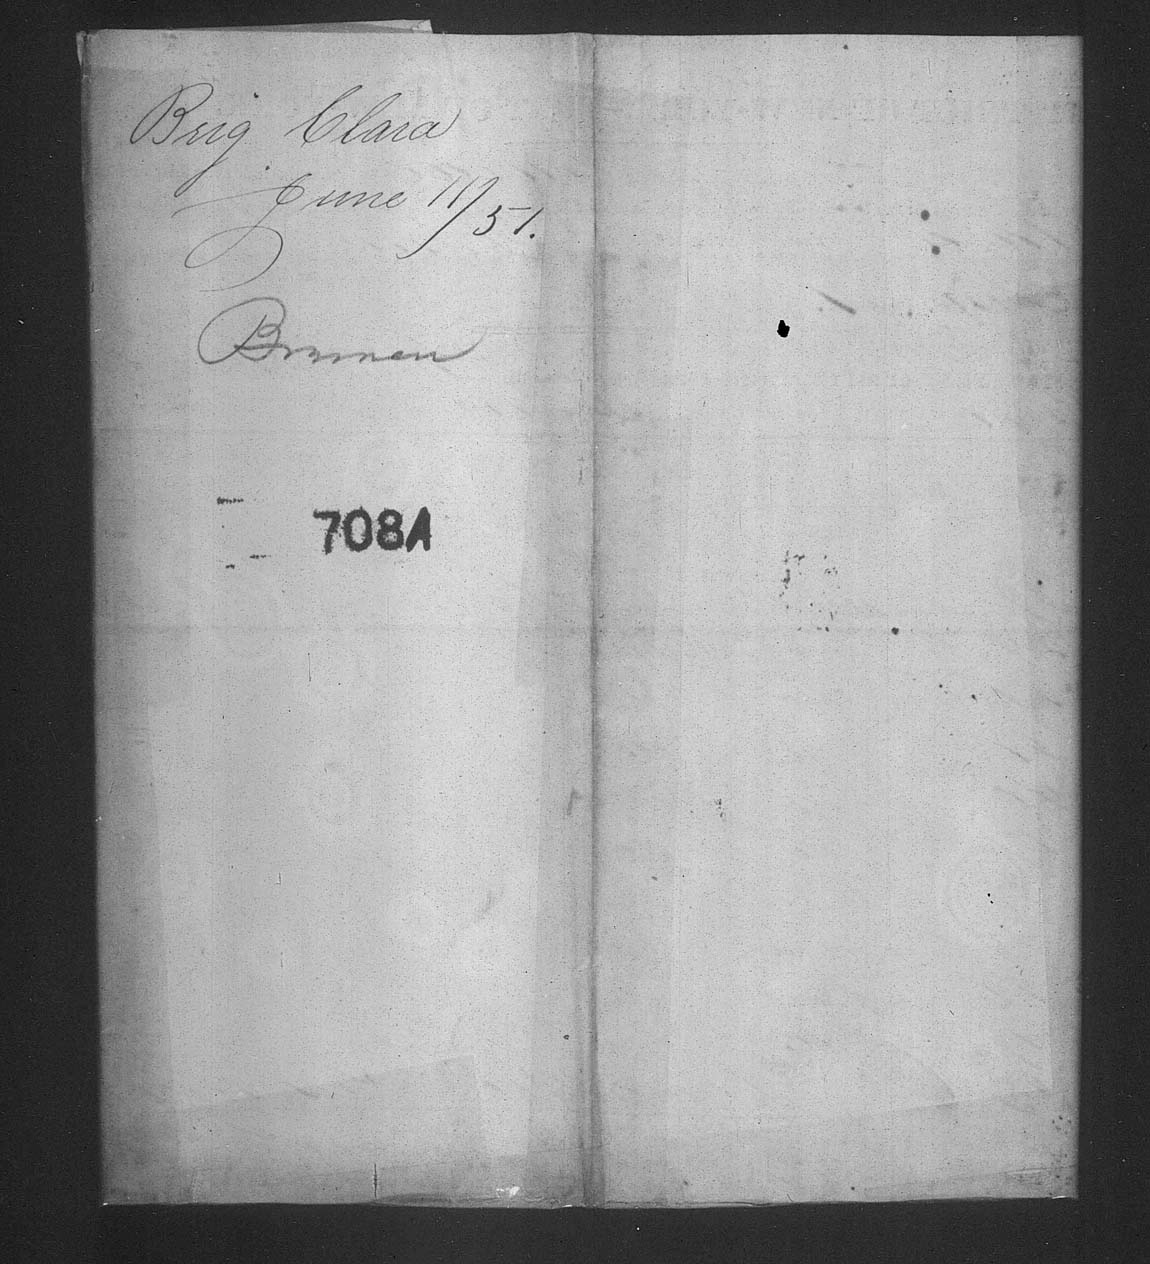 Brig Clara
June 11/51.
Bremen
708A